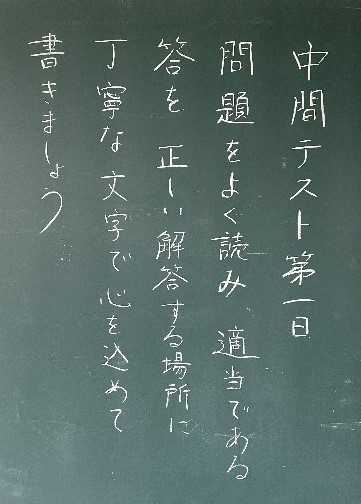 中間テスト第一日
問題をよく読み、適当である
答を 正しい解答する場所に
丁寧な文字で心を込めて
書きましょう